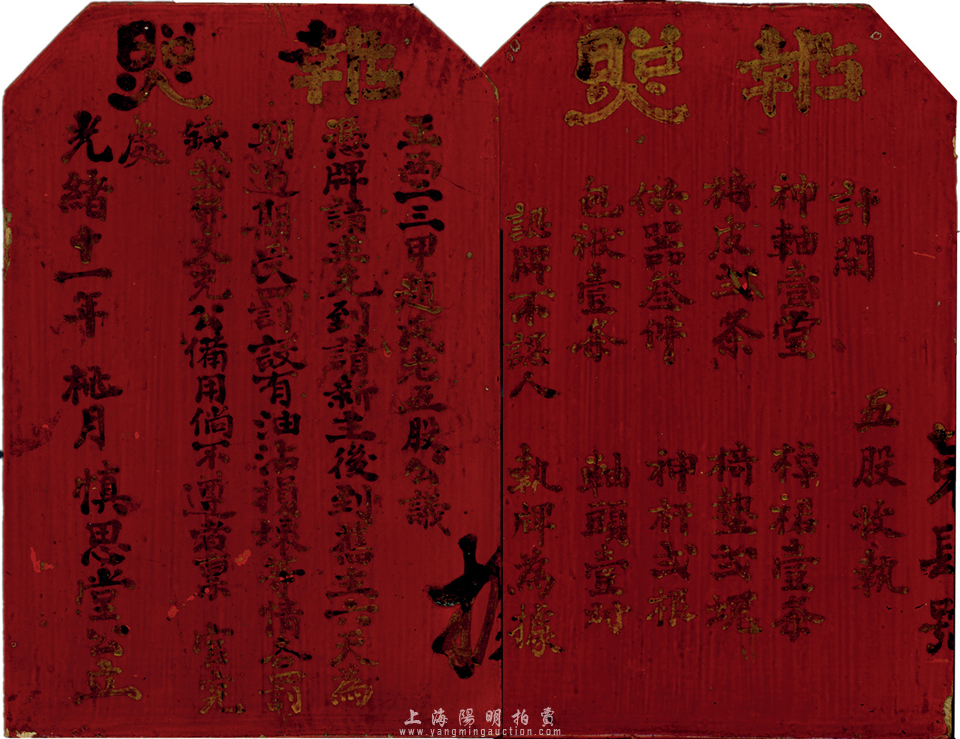 執照
計開 五股收執
神軸壹堂 棹裙壹条
椅皮弍条 椅墊弍塊
供器叁件 神杆弍根
包袱壹条 軸頭壹對
認牌不認人 執牌為據
執照
二三甲 五股公議
憑牌請 先到請新主後到舊主六天為
期過期 罰設有油沾損壞等情 罰
錢 文充公備用倘不遵者禀 官究
處
光緒十一年 桃月 慎思堂公立
上海陽明拍賣
www.yangmingauction.com